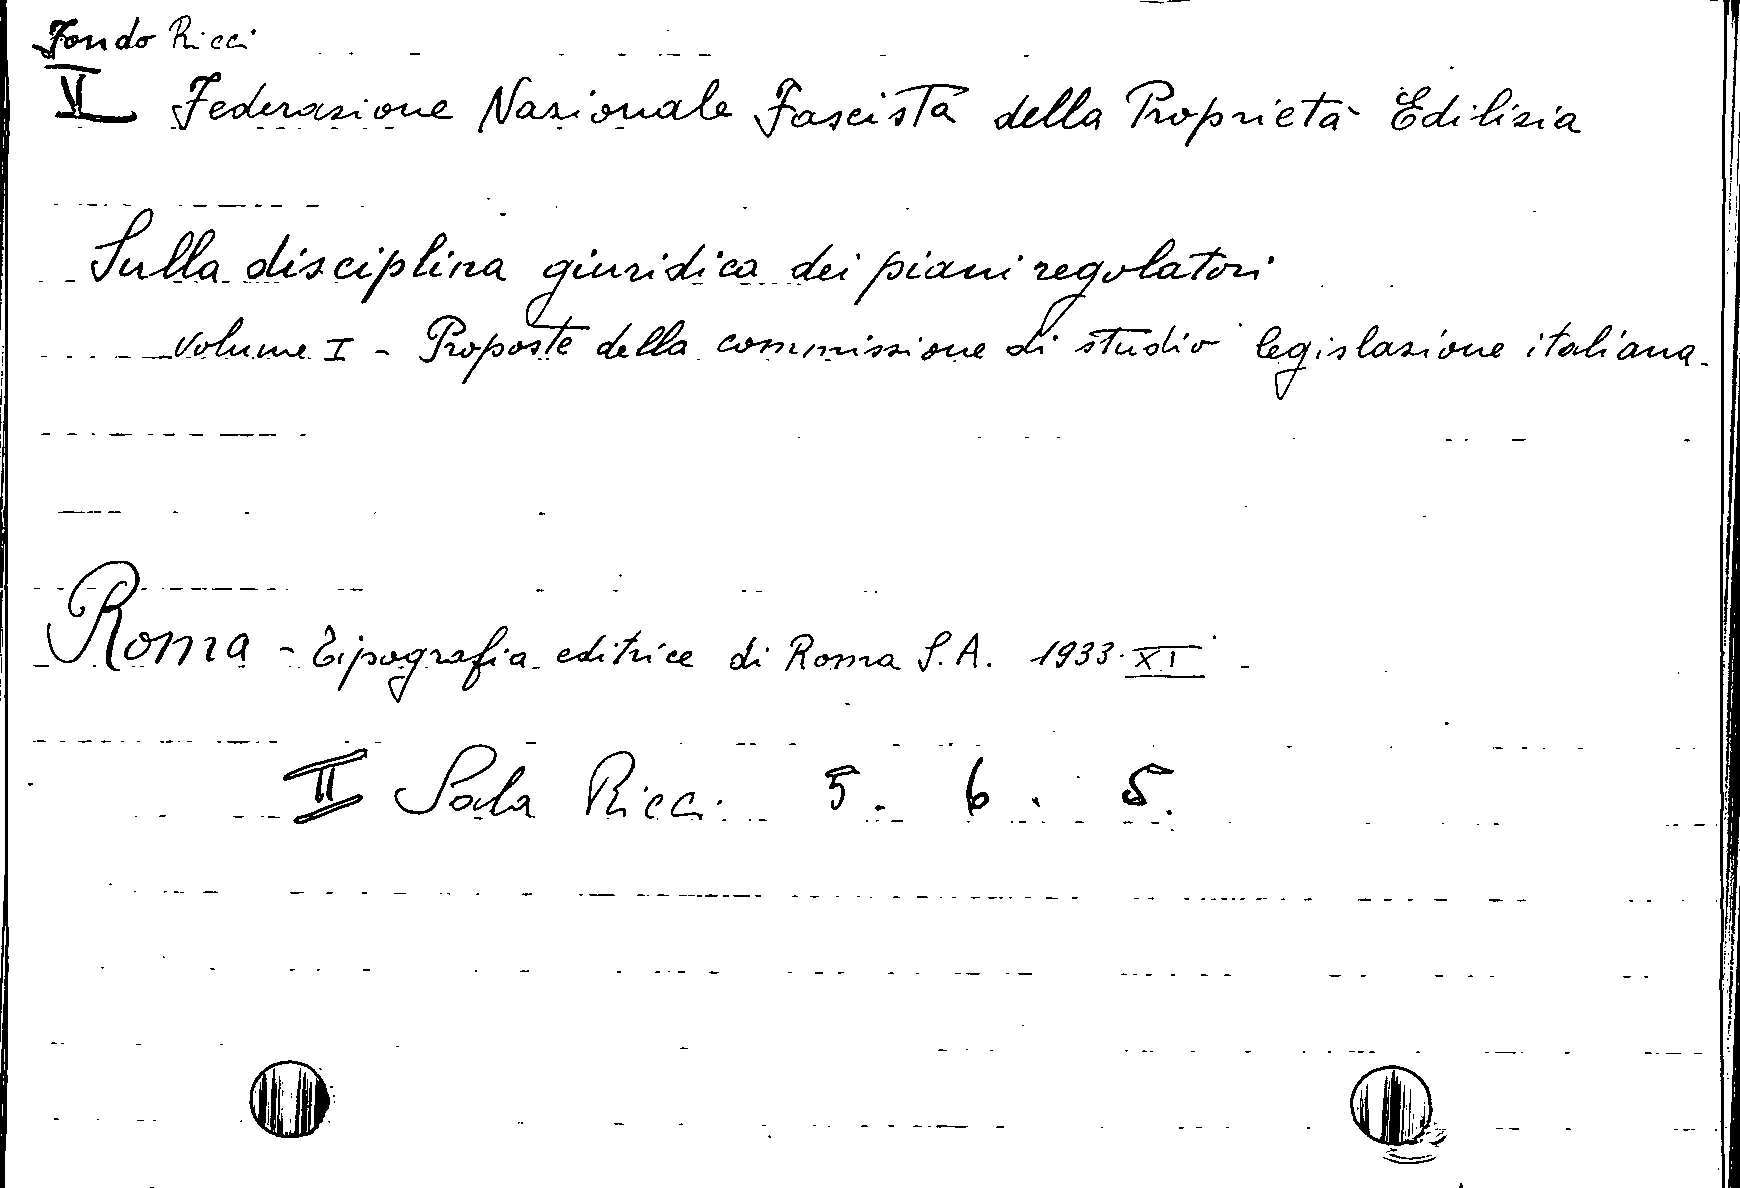 Fondo Ricci
V Federazione Nazionale Fascista della Proprietà Edilizia
Sulla disciplina giuridica dei piani regolatori
Volume I - Proposte della commissione di studio legislazione italiana.
Roma - Tipografia editrice di Roma S.A. 1933. XI
II Sala Ricci 5. 6. 5.